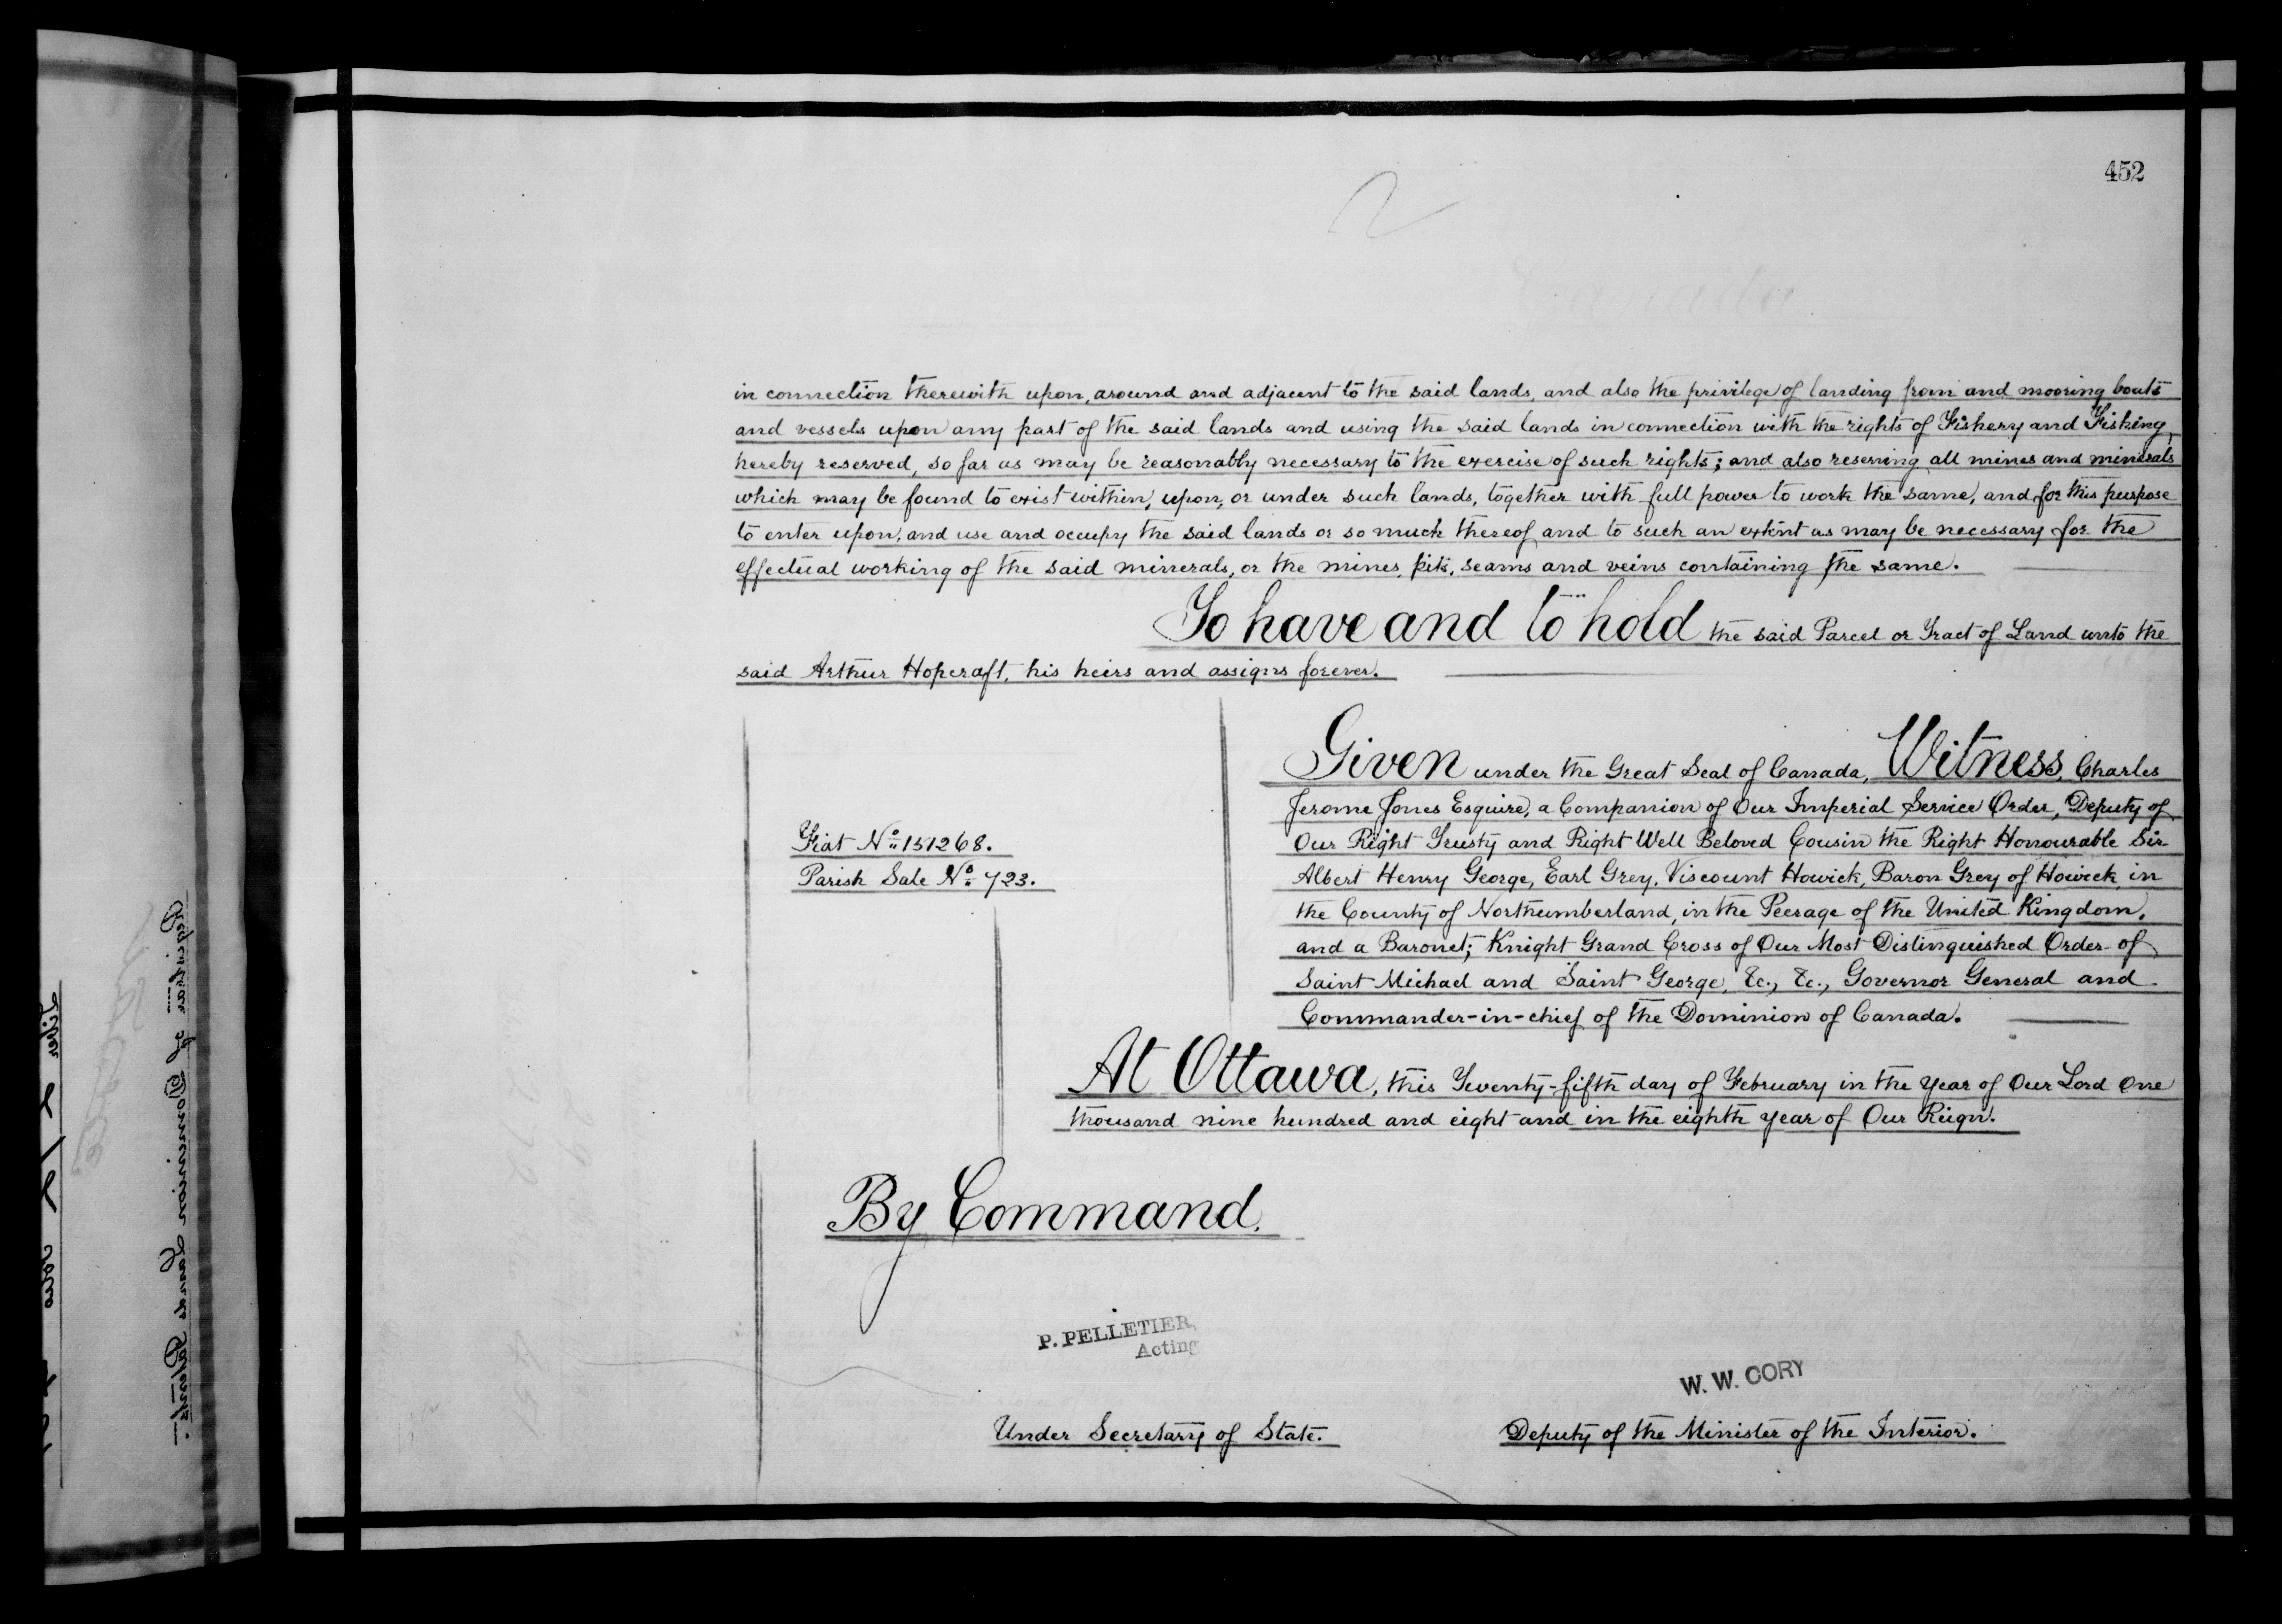 452
in connection therewith upon, around and adjacent to the said lands, and also the privilege of landing from and mooring boats
and vessels upon any part of the said lands and using the said lands in connection with the rights of Fishery and Fishing,
hereby reserved, so far as may be reasonably necessary to the exercise of such rights; and also reserving all mines and minerals
which may be found to exist within, upon, or under such lands, together with full power to work the same, and for this purpose
to enter upon, and use and occupy the said lands or so much thereof and to such an extent as may be necessary for the
effectual working of the said minerals, or the mines, pits, seams and veins containing the same.
To have and to hold the said Parcel or Tract of Land unto the
said Arthur Hopcraft, his heirs and assigns forever.
Given under the Great Seal of Canada, Witness, Charles
Jerome Jones Esquire, a Companion of Our Imperial Service Order, Deputy of
Our Right Trusty and Right Well Beloved Cousin the Right Honourable Sir
Albert Henry George, Earl Grey, Viscount Howick, Baron Grey of Howick, in
the County of Northumberland, in the Peerage of the United Kingdom,
and a Baronet; Knight Grand Cross of Our Most Distinguished Order of
Saint Michael and Saint George, &c., &c., Governor General and
Commander-in-chief of the Dominion of Canada.
Fiat No. 151268.
Parish Sale No. 723.
At Ottawa, this Twenty-fifth day of February in the year of Our Lord One
thousand nine hundred and eight and in the eighth year of Our Reign.
By Command.
P. PELLETIER,
Acting
Under Secretary of State.
W. W. CORY
Deputy of the Minister of the Interior.
Registrar of Dominion Lands Patents.